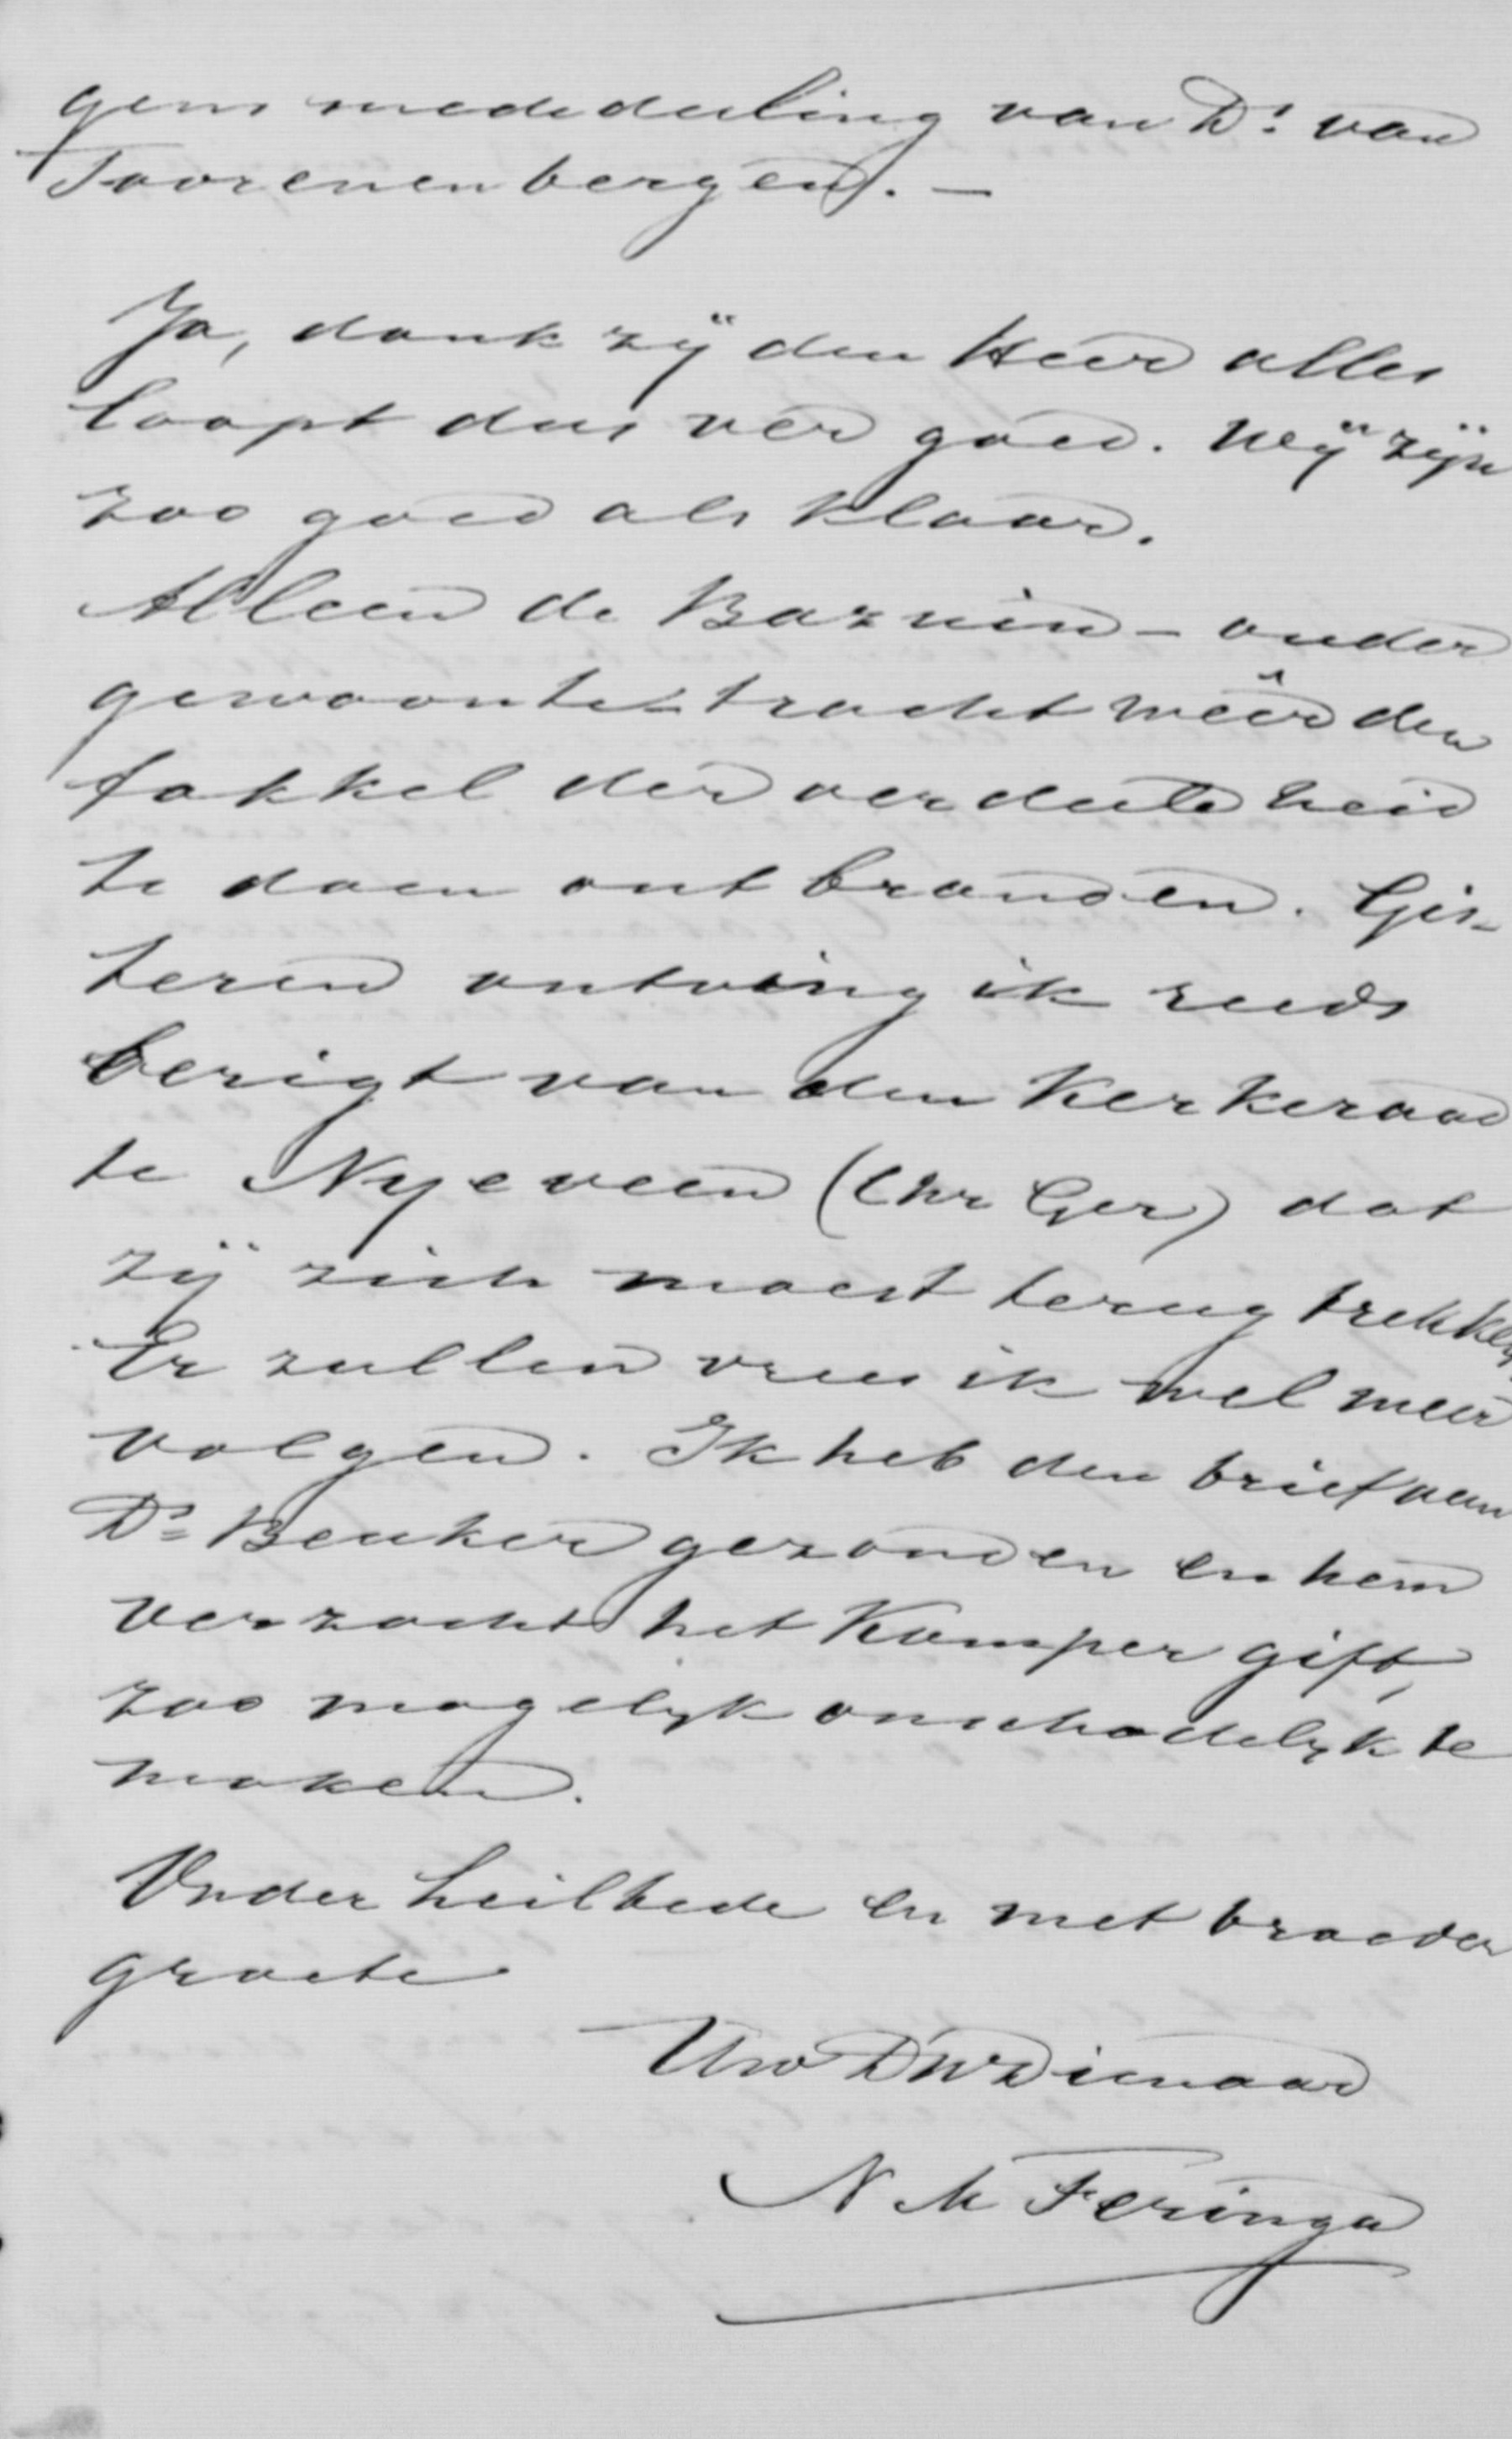 gens mededeeling van Ds. van
Toorenenbergen. —
Ja, dank zÿ den Heer alles
loopt dus ver goed. Wÿ zÿn
zoo goed als klaar.
Alleen de Bazuin – ouder
gewoonte – tracht weêr den
fakkel der verdeeldheid
te doen ontbranden. Gis-
teren ontving ik reeds
berigt van den Kerkeraad
te Nyeveen (Chr Ger) dat
zÿ zich moest terug trekken.
Er zullen vrees ik wel meer
volgen. Ik heb den brief aan
Ds Beuker gezonden en hem
verzocht het Kamper gift,
zoo mogelyk onschadelyk te
maken.
Onder heilbede en met broeder
groete
Uw DWDienaar
N M Feringa